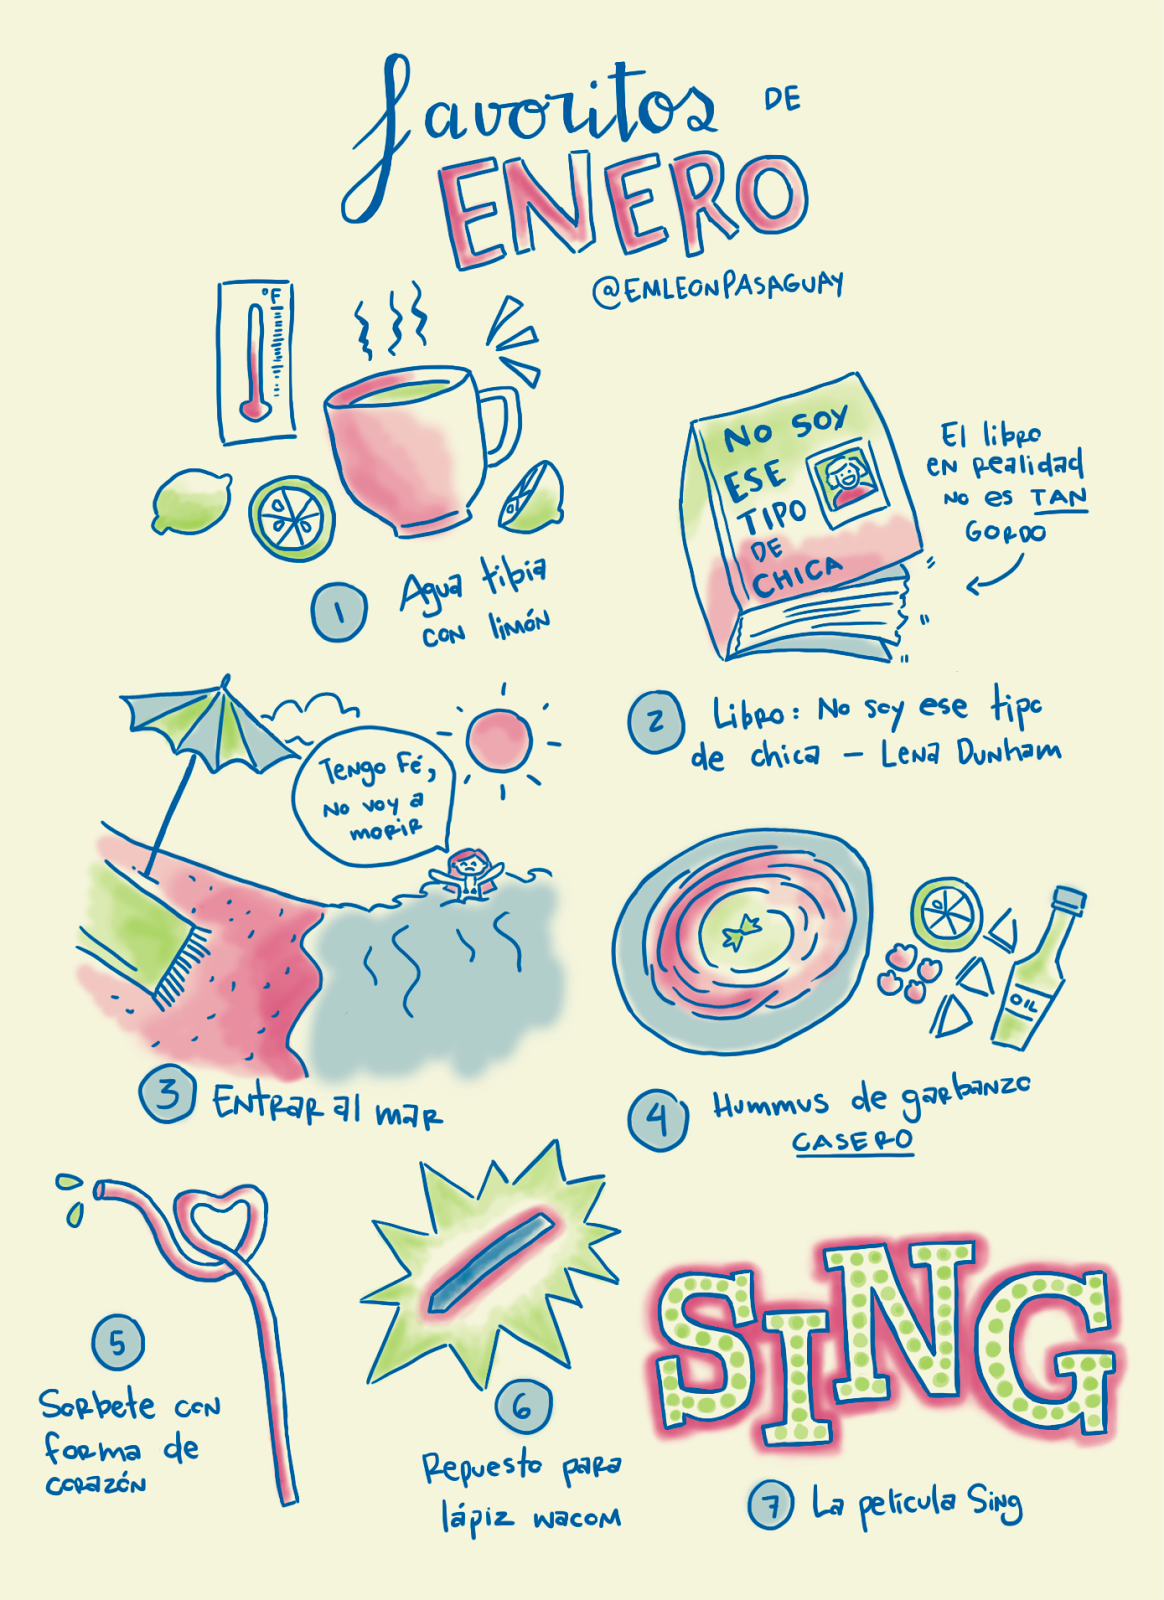 favoritos DE
ENERO
@EMLEONPASAGUAY
°F
1 Agua tibia
con limón
NO SOY
ESE
TIPO
DE
CHICA
El libro
en realidad
no es TAN
GORDO
2 Libro: No soy ese tipo
de chica – Lena Dunham
Tengo Fé,
No voy a
morir
3 Entrar al mar
OIL
4 Hummus de garbanzo
CASERO
5
Sorbete con
forma de
corazón
6
Repuesto para
lápiz wacom
SING
7 La película Sing